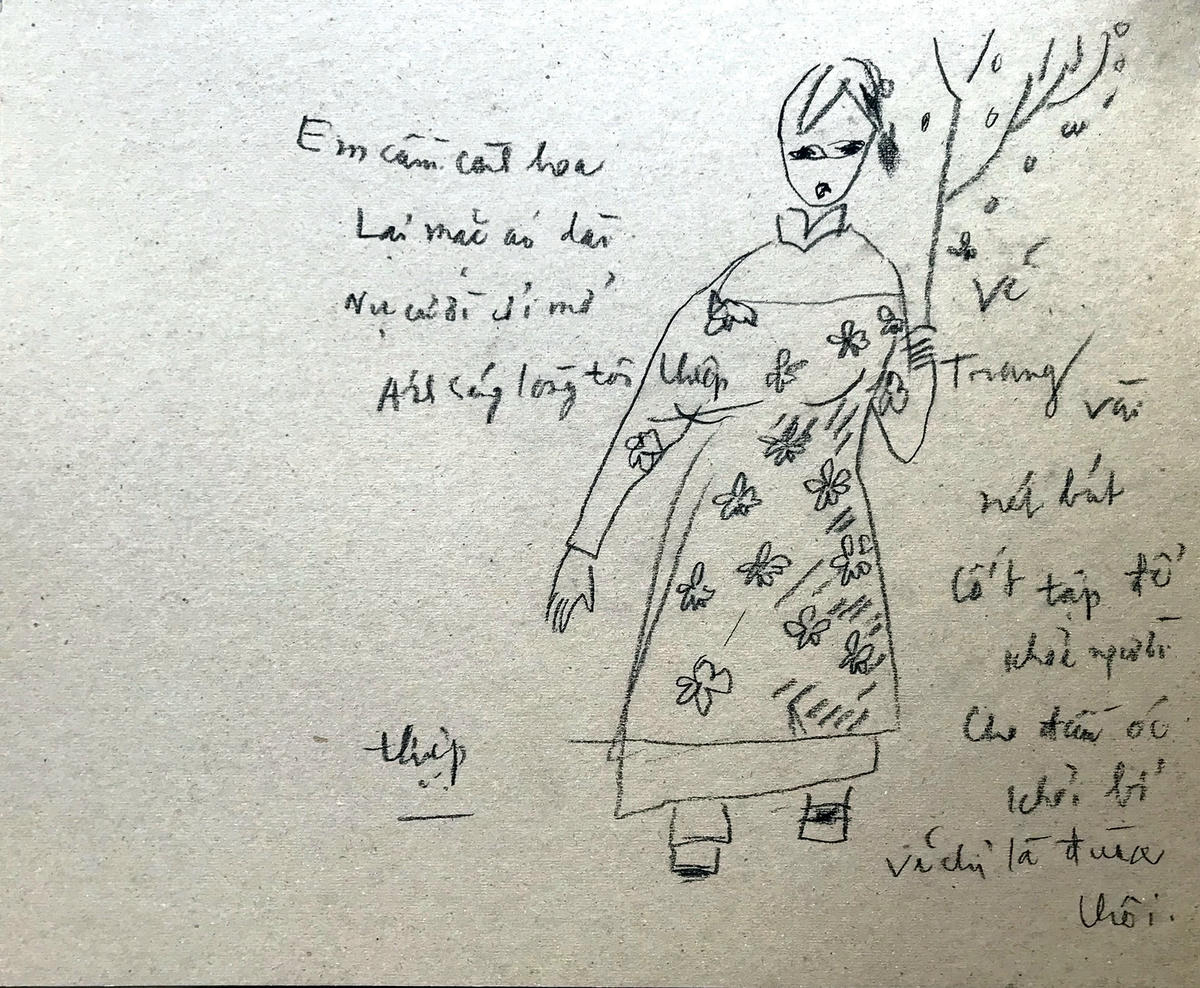 Em cầm cành hoa
Lại mặc áo dài
Nụ cười hé mở
Ánh sáng lòng tôi thiệp
thiệp
Vẽ
Trang
vài
nét bút
Cốt tập để
khỏe người
Cho đầu óc
khỏi bí
Vẽ chỉ là đùa
thôi.